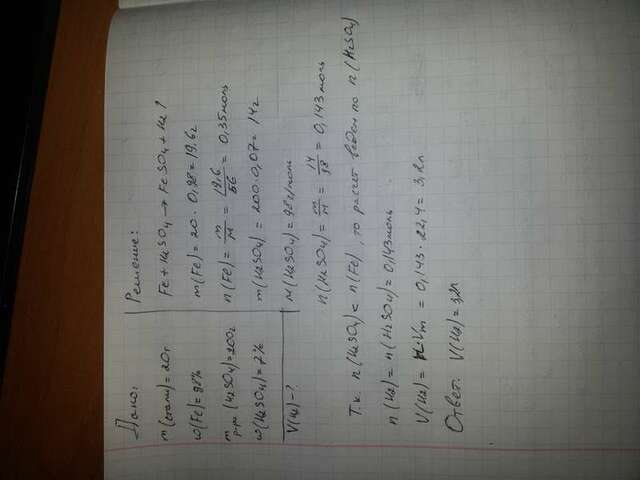 Дано:
m(стали)=20г
w(Fe)=98%
m р-ра (H2SO4)=200г
w(H2SO4)=7%
V(H2)-?
Решение:
Fe+H2SO4→FeSO4+H2↑
m(Fe)=20·0,98=19,6г
n(Fe)=m/M=19,6/56=0,35моль
m(H2SO4)=200·0,07=14г
M(H2SO4)=98г/моль
n(H2SO4)=m/M=14/98=0,143моль
Т.к. n(H2SO4)<n(Fe), то расчет ведем по n(H2SO4)
n(H2)=n(H2SO4)=0,143моль
V(H2)=n·Vm=0,143·22,4=3,2л
Ответ: V(H2)=3,2л